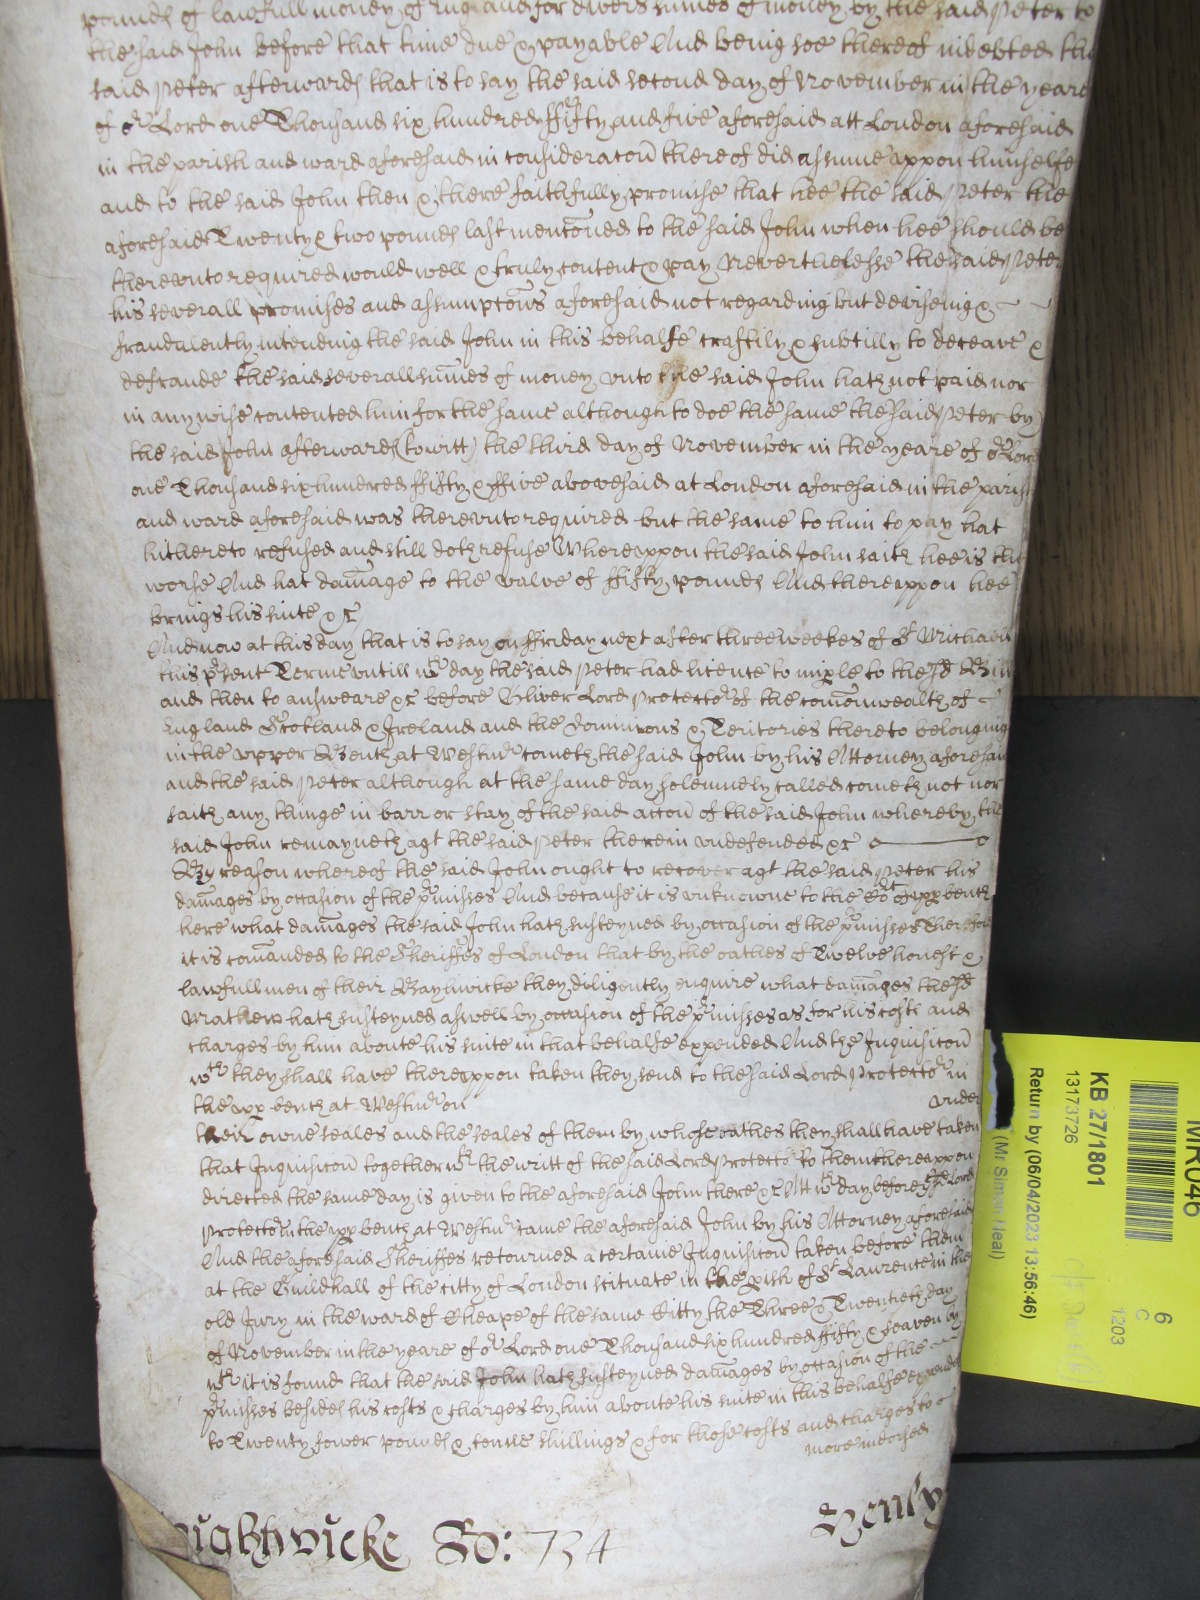 pounds of lawfull money of England for divers summes of money by the said Peter to
the said John before that time due & payable And being soe thereof indebted the
said Peter afterwards that is to say the said second day of November in the yeare
of or Lord one Thousand six hundred ffifty and five aforesaid att London aforesaid
in the parish and ward aforesaid in consideracon thereof did assume uppon himselfe
and to the said John then & there faithfully promise that hee the said Peter the
aforesaid Twenty & two pounds last menconed to the said John when hee should be
therevnto required would well & truly content & pay Neverthelesse the said Peter
his severall promises and assumptons aforesaid not regarding but deviseing &
fraudulently intending the said John in this behalfe craftily & subtilly to deceave &
defraude the said severall summes of money vnto the said John hath not paid nor
in any wise contented him for the same although to doe the same the said Peter by
the said John afterwards (to witt) the third day of November in the yeare of or Lord
one Thousand six hundred ffifty & ffive abovesaid at London aforesaid in the parish
and ward aforesaid was therevnto required but the same to him to pay hat
hithereto refused and still doth refuse Whereuppon the said John saith hee is the
worse And hat damage to the value of ffifty pounds And thereuppon hee
brings his suite &c
And now at this day that is to say on ffriday next after three weekes of St Michaell
this present Terme vntill wch day the said Peter had licence to imple to the sd Bill
and then to answeare &c before Oliver Lord Protector of the comonwealth of
England Scotland & Ireland and the Dominions & Teritories thereto belonging
in the vpper Bench at Westmr cometh the said John by his Attorney aforesaid
and the said Peter although at the same day solemnely called cometh not nor
saith any thinge in barr or stay of the said accon of the said John whereby the
said John remayneth agt the said Peter therein vndefended &c
By reason whereof the said John ought to recover agt the said Peter his
damages by occasion of the pmisses And because it is vnknowne to the Cort of upp bench
here what damages the said John hath susteyned by occasion of the pmisses Therefore
it is comanded to the Sheriffes of London that by the oathes of Twelve honest &
lawfull men of their Baylwicke they diligently enquire what damages the sd
Mathew hath susteyned aswell by occasion of the pmisses as for his costs and
charges by him aboute his suite in that behalfe expended And the Inquisicon
wch they shall have thereuppon taken they send to the said Lord Protector in
the upp bench at Westmr on vnder
their owne seales and the seales of them by whose oathes they shall have taken
that Inquisicon together wth the writt of the said Lord Protector to them thereuppon
directed the same day is given to the aforesaid John there &c Att wch day before the sd Lord
Protector in the upp bench at Westmr came the aforesaid John by his Attorney aforesaid
And the aforesaid Sheriffes retourned a certaine Inquisicon taken before them
at the Guildhall of the citty of London scituate in the pish of St Laurence in the
old Jury in the ward of Cheape of the same Citty the Three & Twentieth day
of November in the yeare of or Lord one Thousand six hundred ffifty & seaven by
wch it is found that the said John hath susteyned damages by occasion of the
pmisses besides his costs & charges by him aboute his suite in this behalfe expended
to Twenty fower pounds & tenne shillings & for those costs and charges to
more indorsed
Wightwicke Ro: 734 Henly
MR046
KB 27/1801
13173726
Return by (06/04/2023 13:56:46)
(Mr Simon Neal)
6
C
1203